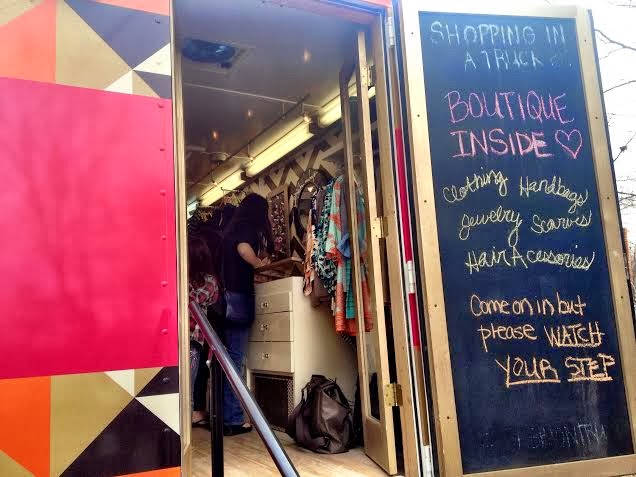 SHOPPING IN
A TRUCK
BOUTIQUE
INSIDE ♡
Clothing Handbags
Jewelry Scarves
Hair Acessorias
Come on in but
please WATCH
YOUR STEP